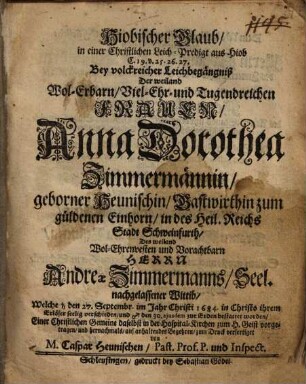 Hiobischer Glaub/
in einer Christlichen Leich-Predigt aus Hiob
C. 19. v. 25. 26. 27.
Bey volckreicher Leichbegängniß
Der weiland
Wol-Erbarn/ Viel-Ehr- und Tugendreichen
FRAUEN/
Anna Dorothea
Zimmermännin/
geborner Heunischin/ Gastwirthin zum
güldenen Einhorn/ in des Heil. Reichs
Stadt Schweinfurth/
Des weiland
Wol-Ehrenvesten und Vorachtbarn
HERRN
Andreæ Zimmermanns/ Seel.
nachgelassener Wittib/
Welche den 27. Septembr. im Jahr Christi 1694. in Christo ihrem
Erlöser seelig verschieden/ und den 30. zur Erden bestattet worden/
Einer Christlichen Gemeine daselbst in der Hospital-Kirchen zum H. Geist vorge-
tragen/ und hernachmals auf Begehren/ zum Druck verfertiget
von
M. Caspar Heunischen/ Past. Prof. P. und Inspect.
Schleusingen/ gedruckt bey Sebastian Göbel.